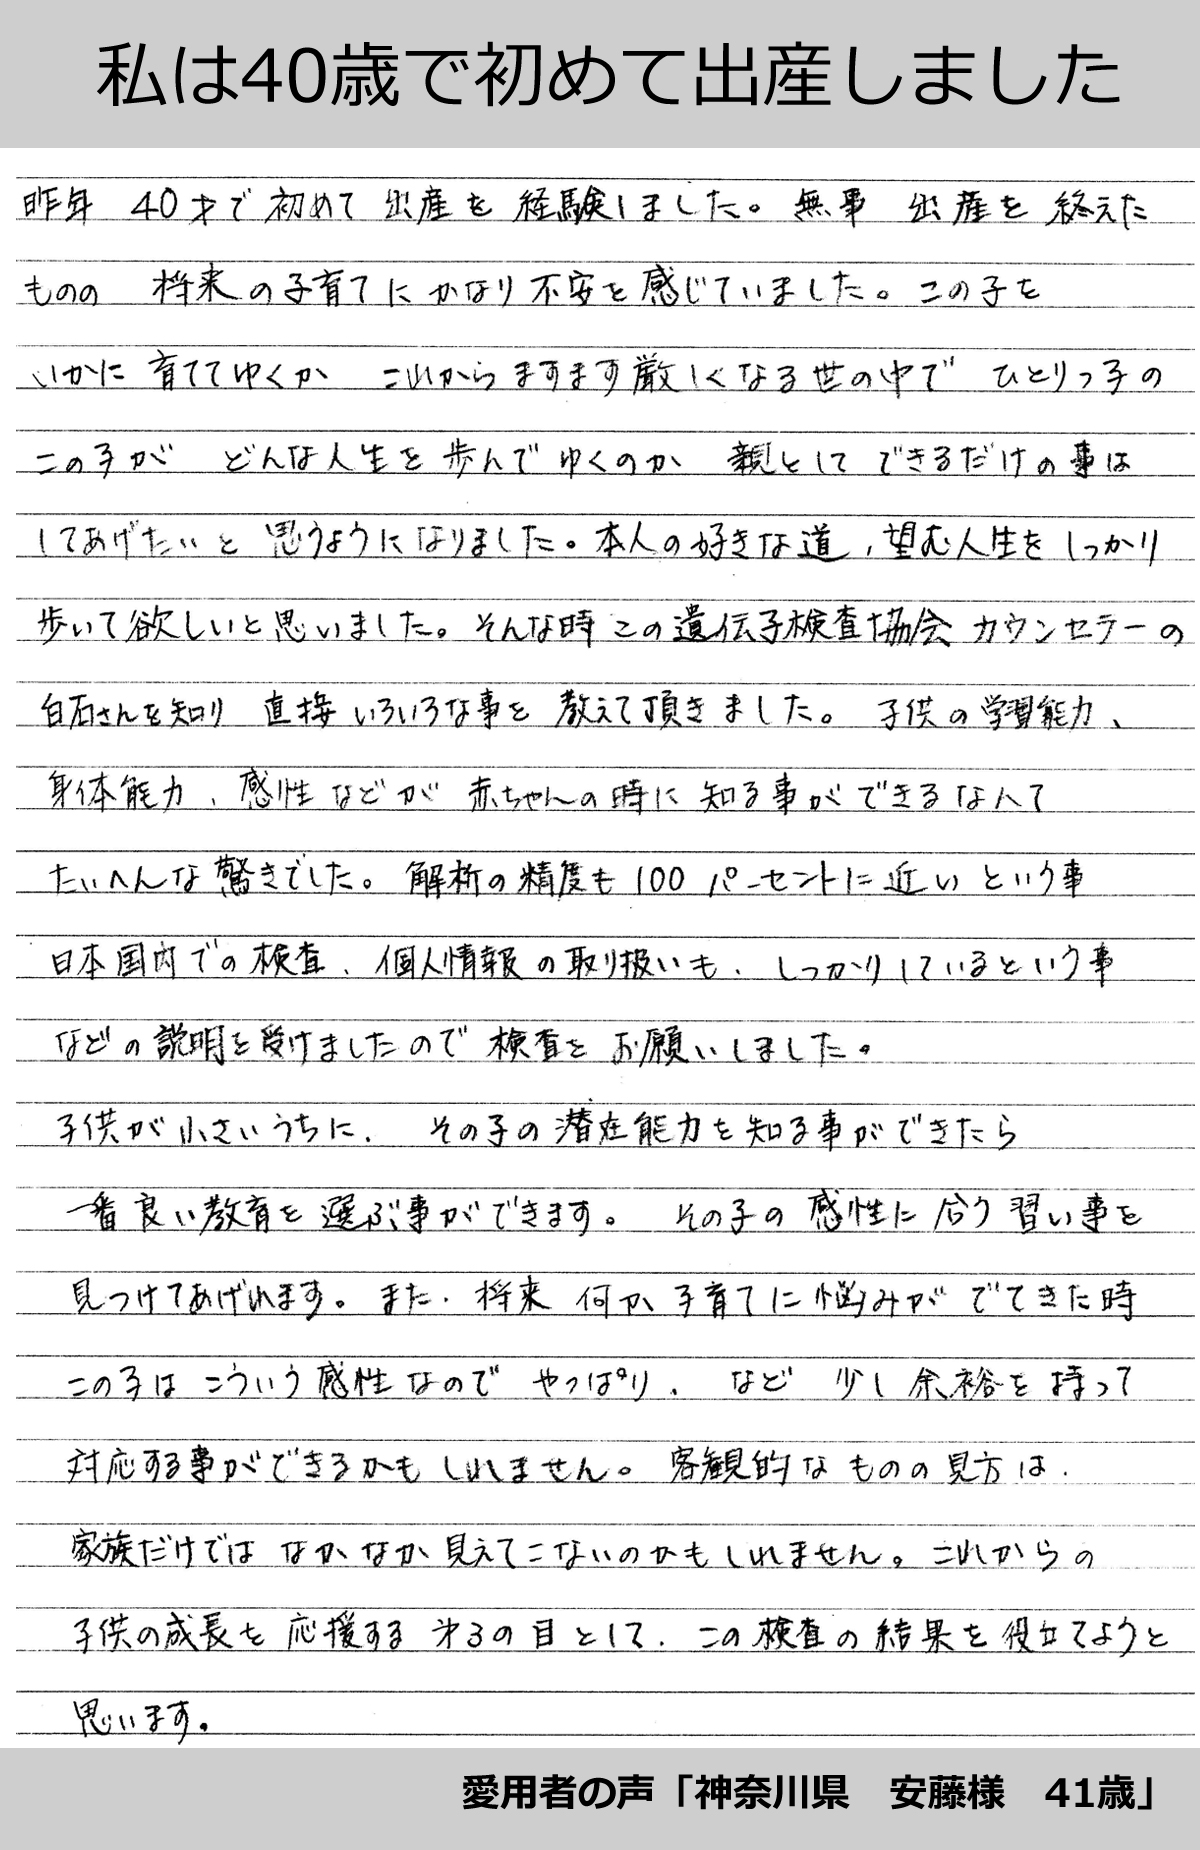 私は40歳で初めて出産しました
昨年 40才で初めて出産を経験しました。無事 出産を終えた
ものの 将来の子育てにかなり不安を感じていました。この子を
いかに育ててゆくか これからますます厳しくなる世の中で ひとりっ子の
この子が どんな人生を歩んでゆくのか 親としてできるだけの事は
してあげたいと思うようになりました。本人の好きな道、望む人生をしっかり
歩いて欲しいと思いました。そんな時この遺伝子検査協会カウンセラーの
白石さんを知り 直接いろいろな事を教えて頂きました。子供の学習能力、
身体能力、感性などが赤ちゃんの時に知る事ができるなんて
たいへんな驚きでした。解析の精度も100パーセントに近いという事
日本国内での検査、個人情報の取り扱いも、しっかりしているという事
などの説明を受けましたので検査をお願いしました。
子供が小さいうちに、その子の潜在能力を知る事ができたら
一番良い教育を選ぶ事ができます。その子の感性に合う習い事を
見つけてあげれます。また、将来何か子育てに悩みがでてきた時
この子はこういう感性なのでやっぱり、など 少し余裕を持って
対応する事ができるかもしれません。客観的なものの見方は、
家族だけではなかなか見えてこないのかもしれません。これからの
子供の成長を応援する 才3の目として、この検査の結果を役立てようと
思います。
愛用者の声「神奈川県 安藤様 41歳」